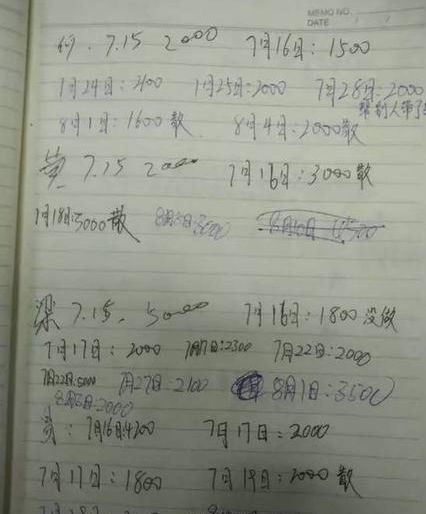 MEMO NO.
DATE
何. 7.15 2000 7月16日: 1500
7月24日: 2100 7月25日: 2000 7月28日: 2000
帮别人带了
8月1日: 1600 散 8月4日: 2000散
黄 7.15 2000 7月16日: 3000 散
7月18日:5000散 8月5日:3000
梁 7.15. 5000 7月16日: 1800 没做
7月17日: 2000 7月17日:2300 7月22日: 2000
7月22日:5000 7月27日: 2100 8月1日: 3500
8月3日:2000
黄: 7月16日:4200 7月17日: 2000
7月17日: 1800 7月19日: 2000 散